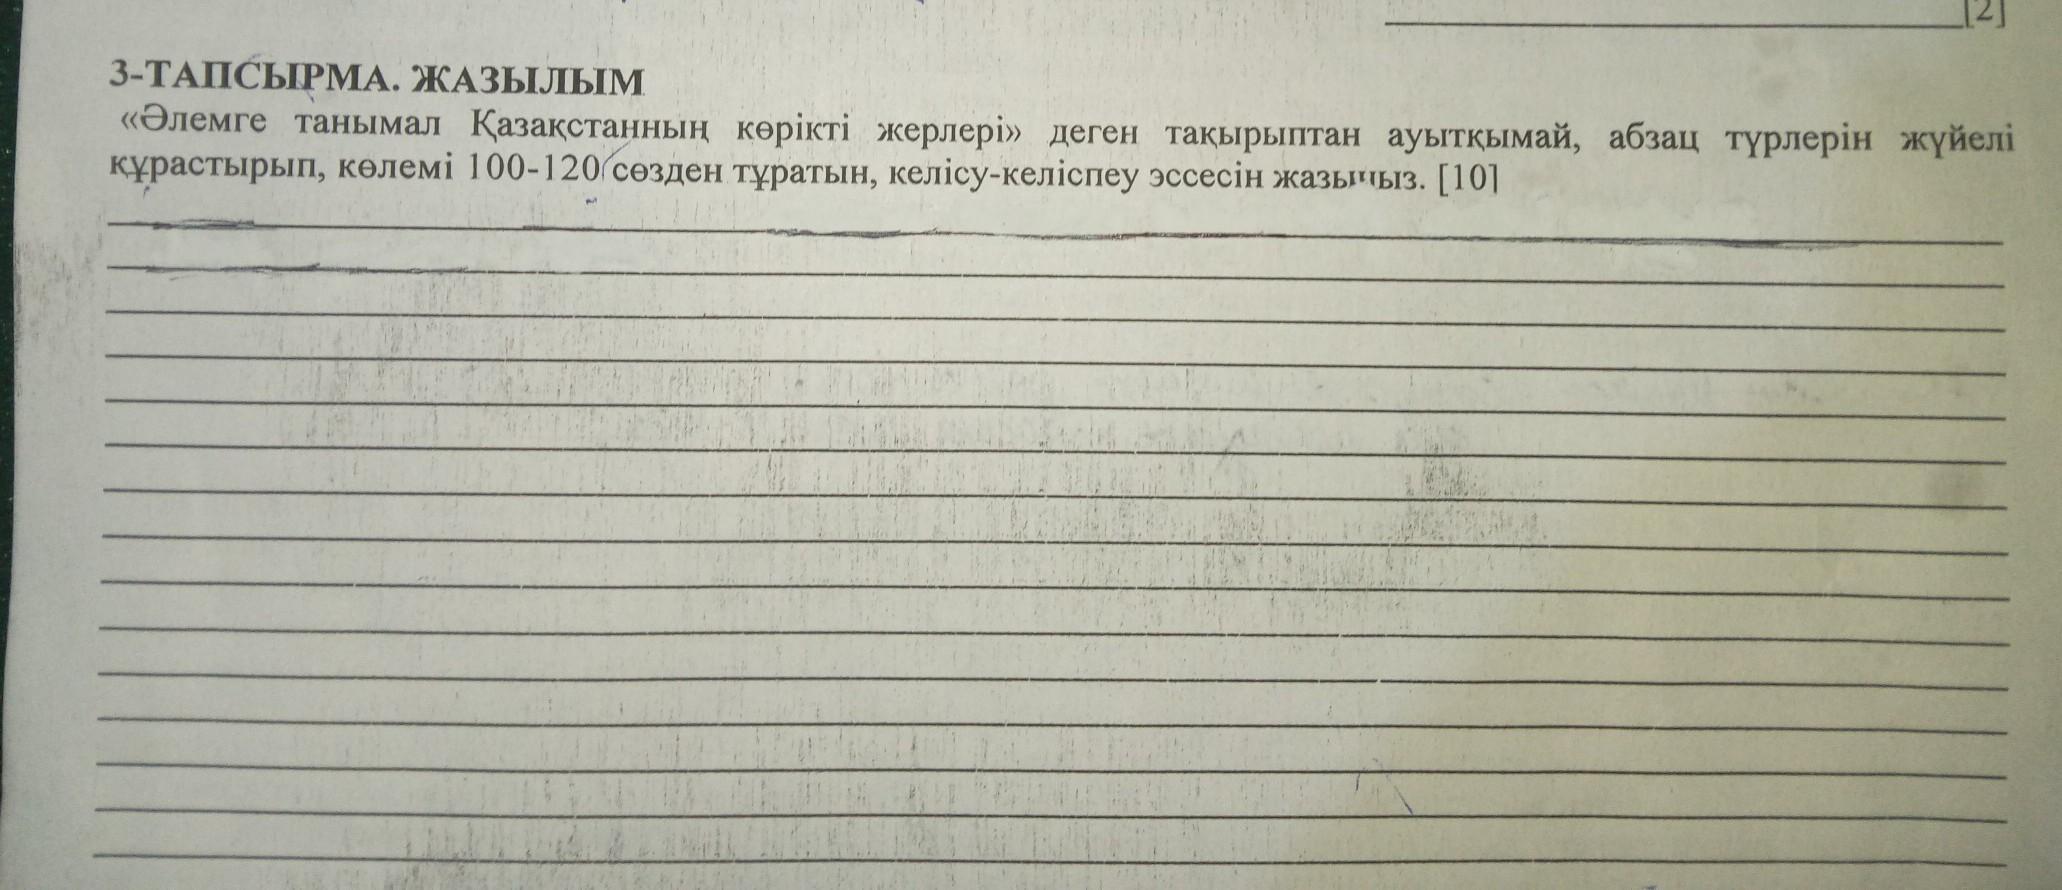 [2]
3-ТАПСЫРМА. ЖАЗЫЛЫМ
«Әлемге танымал Қазақстанның көрікті жерлері» деген тақырыптан ауытқымай, абзац түрлерін жүйелі
құрастырып, көлемі 100-120 сөзден тұратын, келісу-келіспеу эссесін жазыңыз. [10]